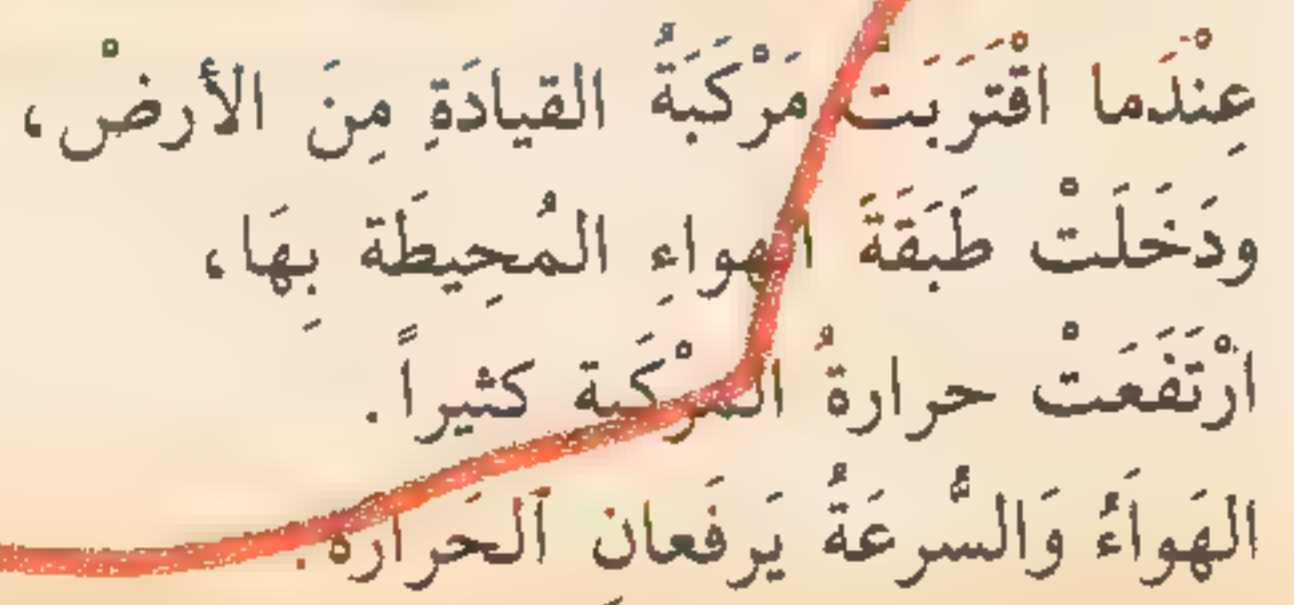 عِنْدَما اقْتَرَبَتْ مَرْكَبَةُ القيادَةِ مِنَ الأرضْ،
ودَخَلَتْ طَبَقَةَ الهواءِ المُحِيطَة بِهَا،
ارْتَفَعَتْ حرارةُ المرْكَبة كثيراً.
الهَواءُ وَالسُّرعَةُ يَرفَعانِ اَلحَرارة.